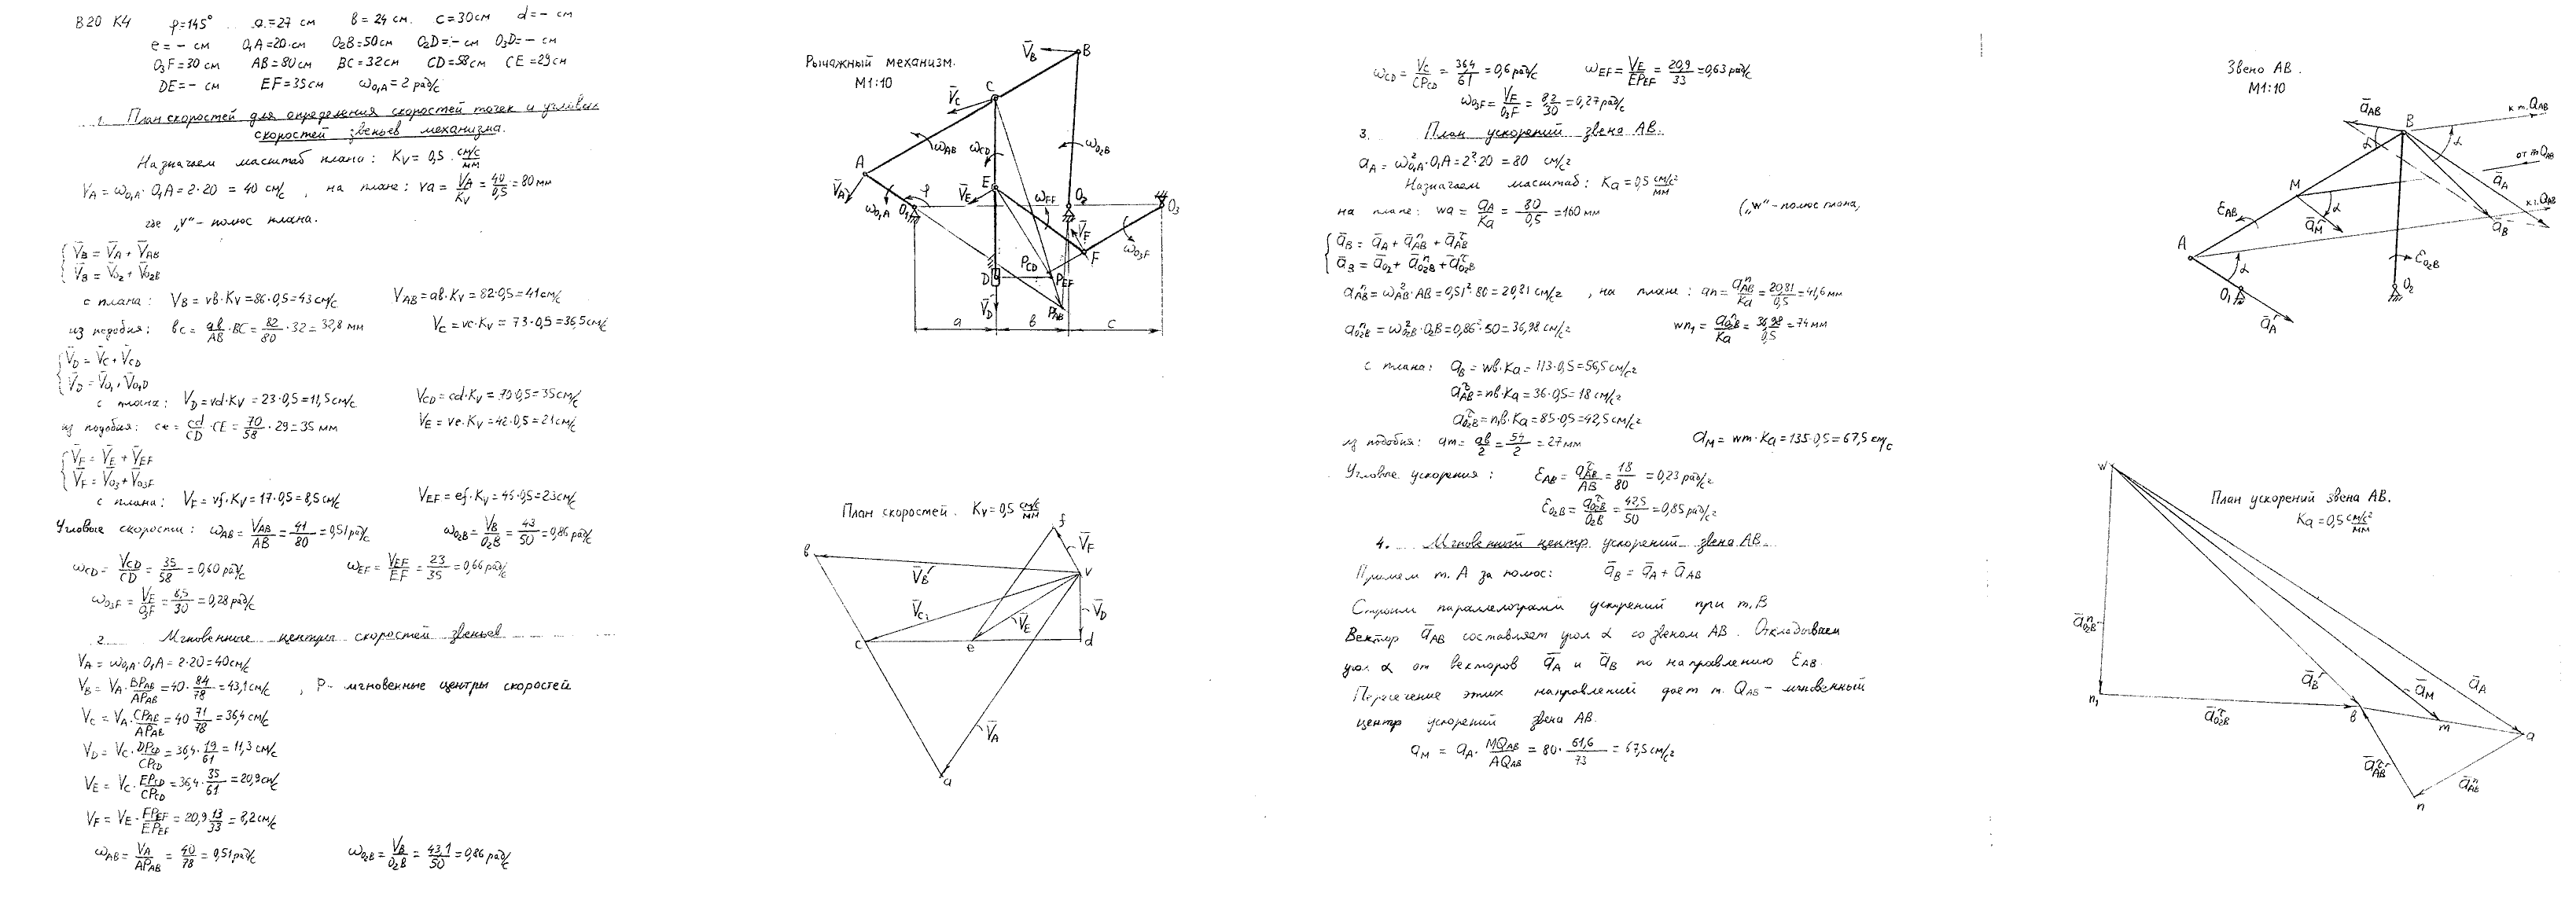 В20 К4 φ=145° a=27 см в=24 см. с=30см d=- см
e=- см O₁A=20·см O₂B=50см O₂D=- см O₃D=- см
O₃F=30 см AB=80см BC=32см CD=58см CE=29см
DE=- см EF=35см ω₀₁A=2 рад/с
1. План скоростей для определения скоростей точек и угловых
скоростей звеньев механизма.
Назначаем масштаб плана: Kv=0,5 см/с/мм
VA=ω₀₁A·O₁A=2·20=40 см/с, на плане: va=VA/Kv=40/0,5=80мм
где „v“- полюс плана.
V̄B=V̄A+V̄AB
V̄B=V̄O₂+V̄O₂B
с плана: VB=vв·Kv=86·0,5=43см/с VAB=aв·Kv=82·0,5=41см/с
из подобия: вc=aв/AB·BC=82/80·32=32,8 мм VC=vc·Kv=73·0,5=36,5см/с
V̄D=V̄C+V̄CD
V̄D=V̄O₁+V̄O₁D
с плана: VD=vd·Kv=23·0,5=11,5см/с VCD=cd·Kv=70·0,5=35см/с
из подобия: ce=cd/CD·CE=70/58·29=35 мм VE=ve·Kv=42·0,5=21см/с
V̄F=V̄E+V̄EF
V̄F=V̄O₃+V̄O₃F
с плана: VF=vf·Kv=17·0,5=8,5см/с VEF=ef·Kv=45·0,5=23см/с
Угловые скорости: ωAB=VAB/AB=41/80=0,51рад/с ωO₂B=VB/O₂B=43/50=0,86рад/с
ωCD=VCD/CD=35/58=0,60рад/с ωEF=VEF/EF=23/35=0,66рад/с
ωO₃F=VF/O₃F=8,5/30=0,28рад/с
2. Мгновенные центры скоростей звеньев
VA=ω₀₁A·O₁A=2·20=40см/с
VB=VA·BPAB/APAB=40·84/78=43,1см/с, P- мгновенные центры скоростей
VC=VA·CPAB/APAB=40 71/78=36,4см/с
VD=VC·DPCD/CPCD=36,4·19/61=11,3см/с
VE=VC·EPCD/CPCD=36,4·35/61=20,9см/с
VF=VE·FPEF/EPEF=20,9 13/33=8,2см/с
ωAB=VA/APAB=40/78=0,51рад/с ωO₂B=VB/O₂B=43,1/50=0,86рад/с
Рычажный механизм.
М1:10
V̄B
B
C
V̄C
ωAB
ωCD
ωO₂B
A
V̄A
ωO₁A
φ
O₁
V̄E
E
ωEF
O₂
O₃
V̄F
F
ωO₃F
PCD
D
PEF
V̄D
PAB
a
в
c
План скоростей. Kv=0,5 см/с/мм
f
V̄F
в
V̄B
v
V̄C
V̄D
V̄E
c
e
d
V̄A
a
ωCD=VC/CPCD=36,4/61=0,6рад/с ωEF=VE/EPEF=20,9/33=0,63рад/с
ωO₃F=VF/O₃F=8,2/30=0,27рад/с
3. План ускорений звена АВ.
aA=ω²O₁A·O₁A=2²·20=80 см/с²
Назначаем масштаб: Ka=0,5 см/с²/мм
на плане: wa=aA/Ka=80/0,5=160мм („w“-полюс плана,
āB=āA+āⁿAB+ā^τAB
āB=āO₂+āⁿO₂B+ā^τO₂B
aⁿAB=ω²AB·AB=0,51²·80=20,81см/с², на плане: an=aⁿAB/Ka=20,81/0,5=41,6мм
aⁿO₂B=ω²O₂B·O₂B=0,86²·50=36,98см/с² wn₁=aⁿO₂B/Ka=36,98/0,5=74мм
с плана: aB=wв·Ka=113·0,5=56,5см/с²
a^τAB=nв·Ka=36·0,5=18см/с²
a^τO₂B=n₁в·Ka=85·0,5=42,5см/с²
из подобия: am=aв/2=54/2=27мм aM=wm·Ka=135·0,5=67,5см/с
Угловые ускорения: εAB=a^τAB/AB=18/80=0,23рад/с²
εO₂B=a^τO₂B/O₂B=42,5/50=0,85рад/с²
4. Мгновенный центр ускорений звена АВ.
Примем т.А за полюс: āB=āA+āAB
Строим параллелограмм ускорений при т.В
Вектор āAB составляет угол α со звеном АВ. Откладываем
угол α от векторов āA и āB по направлению εAB.
Пересечение этих направлений дает т. QAB-мгновенный
центр ускорений звена АВ.
aM=aA·MQAB/AQAB=80·61,6/73=67,5см/с²
Звено АВ.
М1:10
āAB
B
к т.QAB
α
α
от т.QAB
āA
M
к т.QAB
α
āM
āB
εAB
A
α
O₁
εO₂B
O₂
āA
w
План ускорений звена АВ.
Ka=0,5 см/с²/мм
āⁿO₂B
āB
āM
āA
n₁
ā^τO₂B
в
m
a
ā^τAB
āⁿAB
n